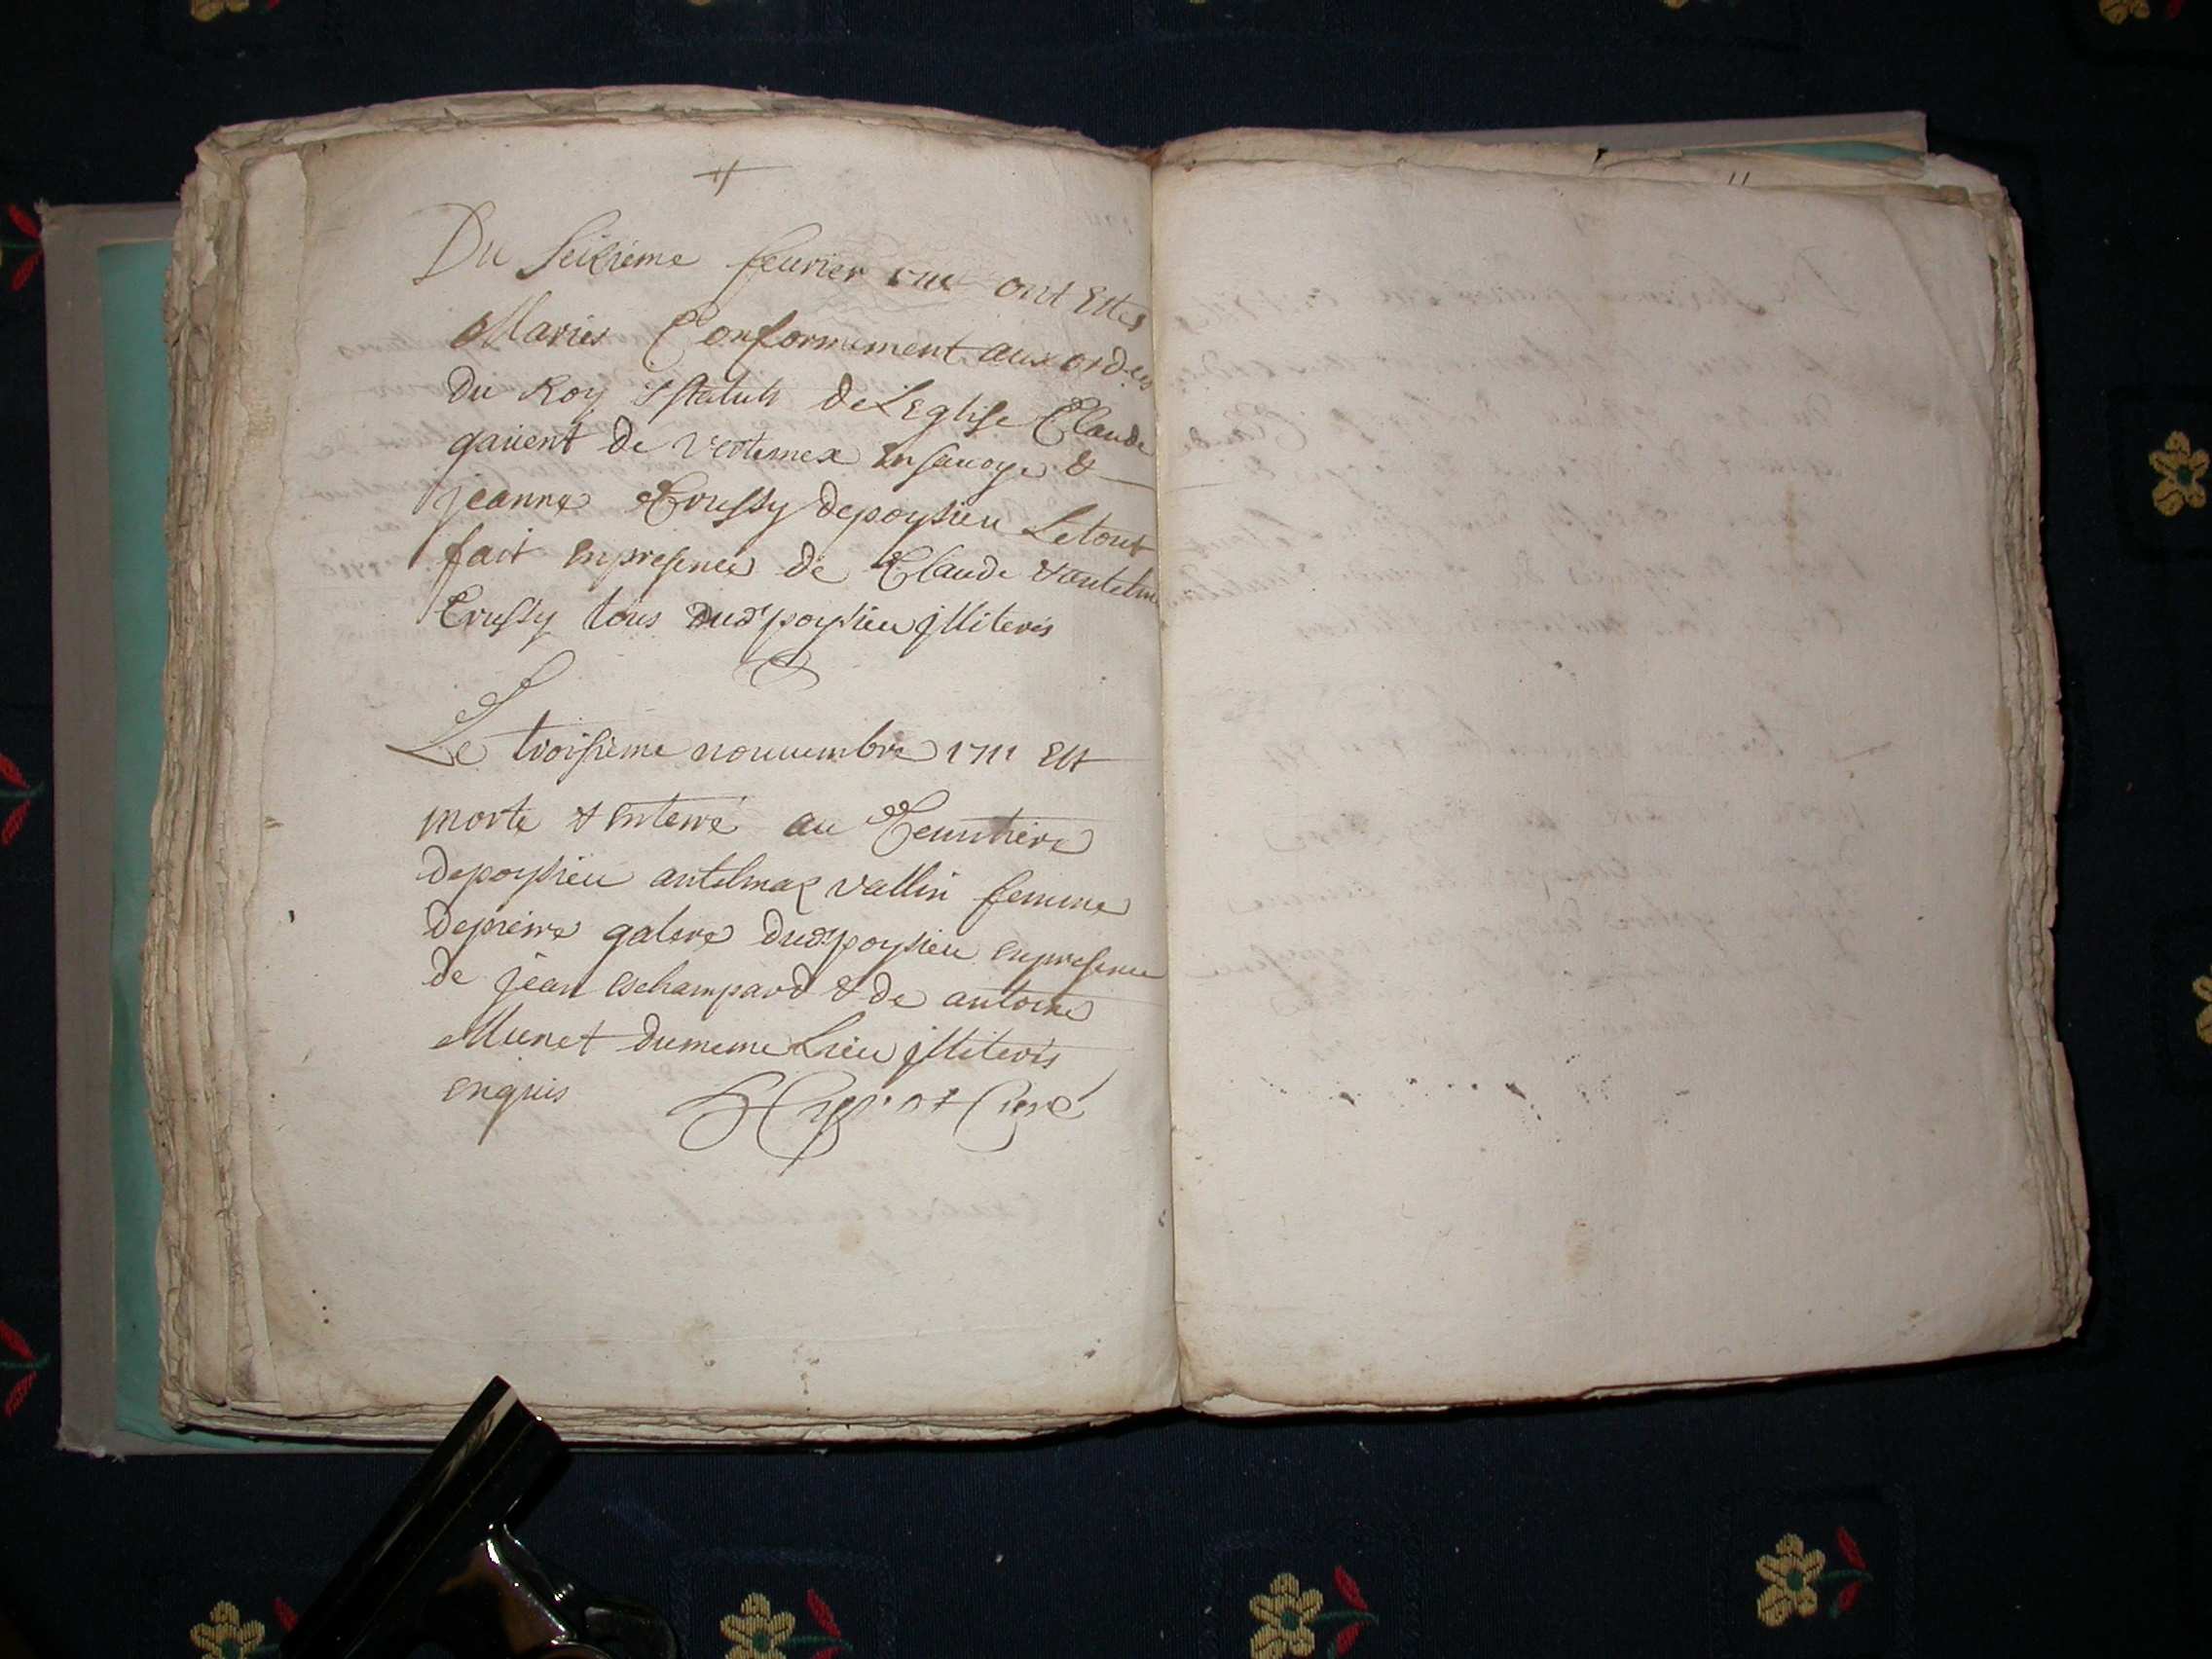 Du Seizieme feurier 1711 ont Estes
Maries Conformement aux ordes
Du Roy & statuts de LEglise Claude
gauent de Vertemex En sauoye &
jeanne Crussy depoysieu Le tout
fait enpresence de Claude & antelme
Crussy tous dudt poysieu jlliterés
Le troisieme nouuembre 1711 Est
morte & enterré au Cemitiere
depoysieu antelmaz vallin femme
depierre galere dudt poysieu enpresence
de jean eschampard & de antoine
Munet dumeme Lieu jlliterés
enquis Curé